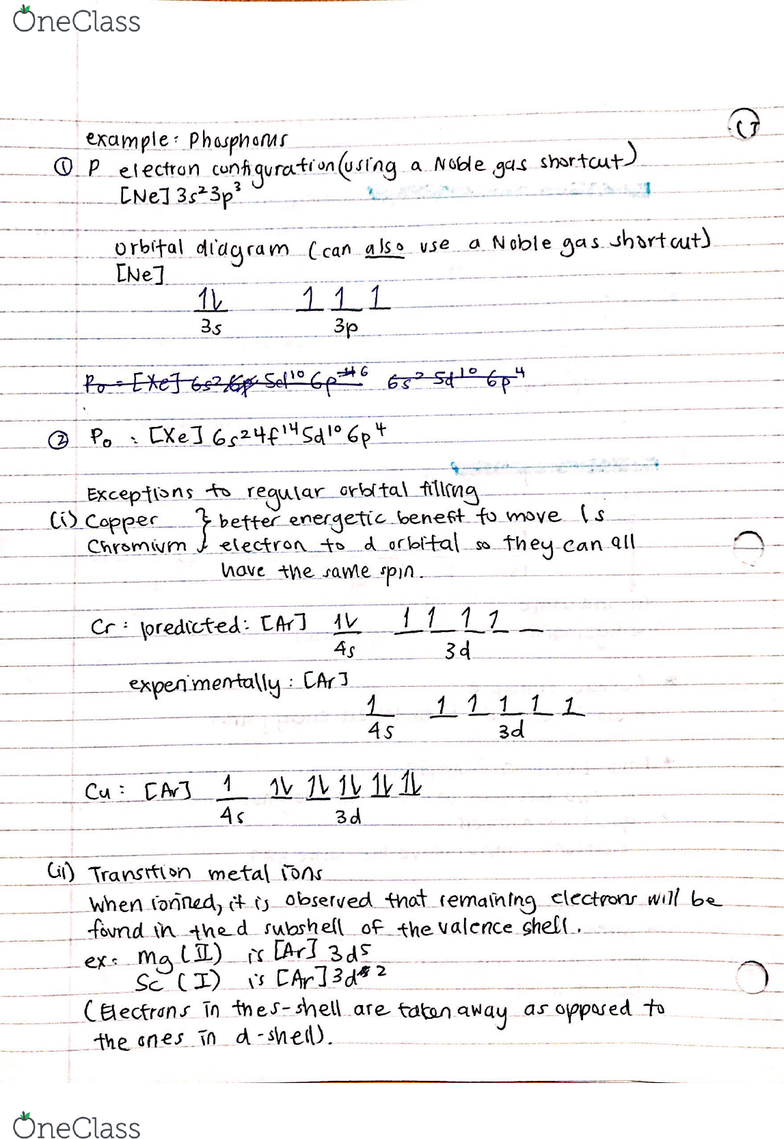 OneClass
example: Phosphorus
① P electron configuration (using a Noble gas shortcut)
[Ne] 3s²3p³
orbital diagram (can also use a Noble gas shortcut)
[Ne]
1l 1 1 1
3s 3p
Po = [Xe] 6s² 6p 5d¹⁰ 6p⁶ 6s² 5d¹⁰ 6p⁴
② Po : [Xe] 6s²4f¹⁴5d¹⁰6p⁴
Exceptions to regular orbital filling
(i) Copper } better energetic benefit to move 1 s
Chromium } electron to d orbital so they can all
have the same spin.
Cr : predicted: [Ar] 1l 1 1 1 1 _
4s 3d
experimentally : [Ar]
1 1 1 1 1 1
4s 3d
Cu : [Ar] 1 1l 1l 1l 1l 1l
4s 3d
(ii) Transition metal ions
When ionized, it is observed that remaining electrons will be
found in the d subshell of the valence shell.
ex: Mg (II) is [Ar] 3d⁵
Sc (I) is [Ar] 3d²
(Electrons in the s-shell are taken away as opposed to
the ones in d-shell).
OneClass